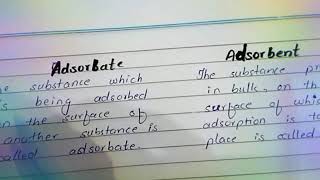 Adsorbate
he substance which
is being adsorbed
on the surface of
another substance is
called adsorbate.
Adsorbent
The substance pr
in bulk, on th
surface of whic
adsorption is ta
place is called